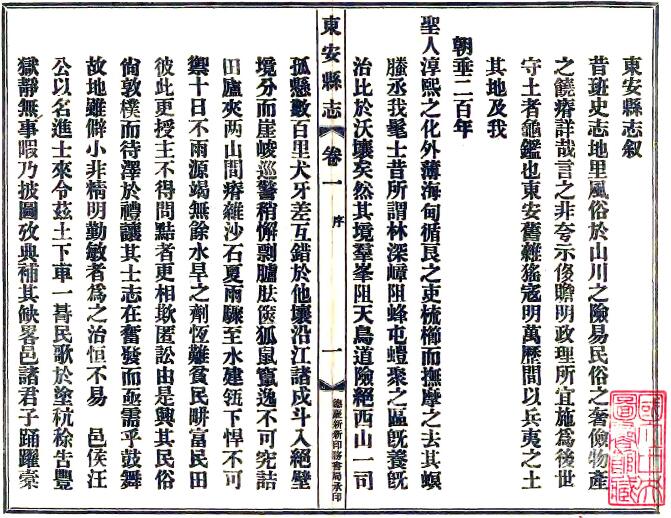 東安縣志叙
昔班史志地里風俗於山川之險易民俗之奢儉物產
之饒瘠詳哉言之非夸示後瞻明政理所宜施為後世
守土者龜鑑也東安舊雜猺寇明萬歷間以兵夷之土
其地及我
朝垂二百年
聖人淳熙之化外薄海甸循艮之吏梳櫛而撫摩之去其螟
螣丞我髦士昔所謂林深嶂阻蜂屯螘聚之區既養既
治比於沃壤矣然其境羣峯阻天鳥道險絕西山一司
東安縣志
卷一
序
一
孤懸數百里犬牙差互錯於他壤沿江諸戍斗入絕壁
境分而崖峻巡警稍懈剽臚胠篋狐鼠竄逸不可究詰
田廬夾两山間瘠雜沙石夏雨驟至水建瓴下悍不可
禦十日不雨源竭無餘水旱之劑恆難貧民畊富民田
彼此更授主不得問黠者更相欺匿訟由是興其民俗
尙敦樸而待澤於禮讓其士志在奮發而亟需乎鼓舞
故地雖僻小非精明勤敏者為之治恒不易 邑侯汪
公以名進士來令茲土下車一朞民歌於塗秔稌告豐
獄靜無事暇乃披圖攷典補其缺畧邑諸君子踊躍槖